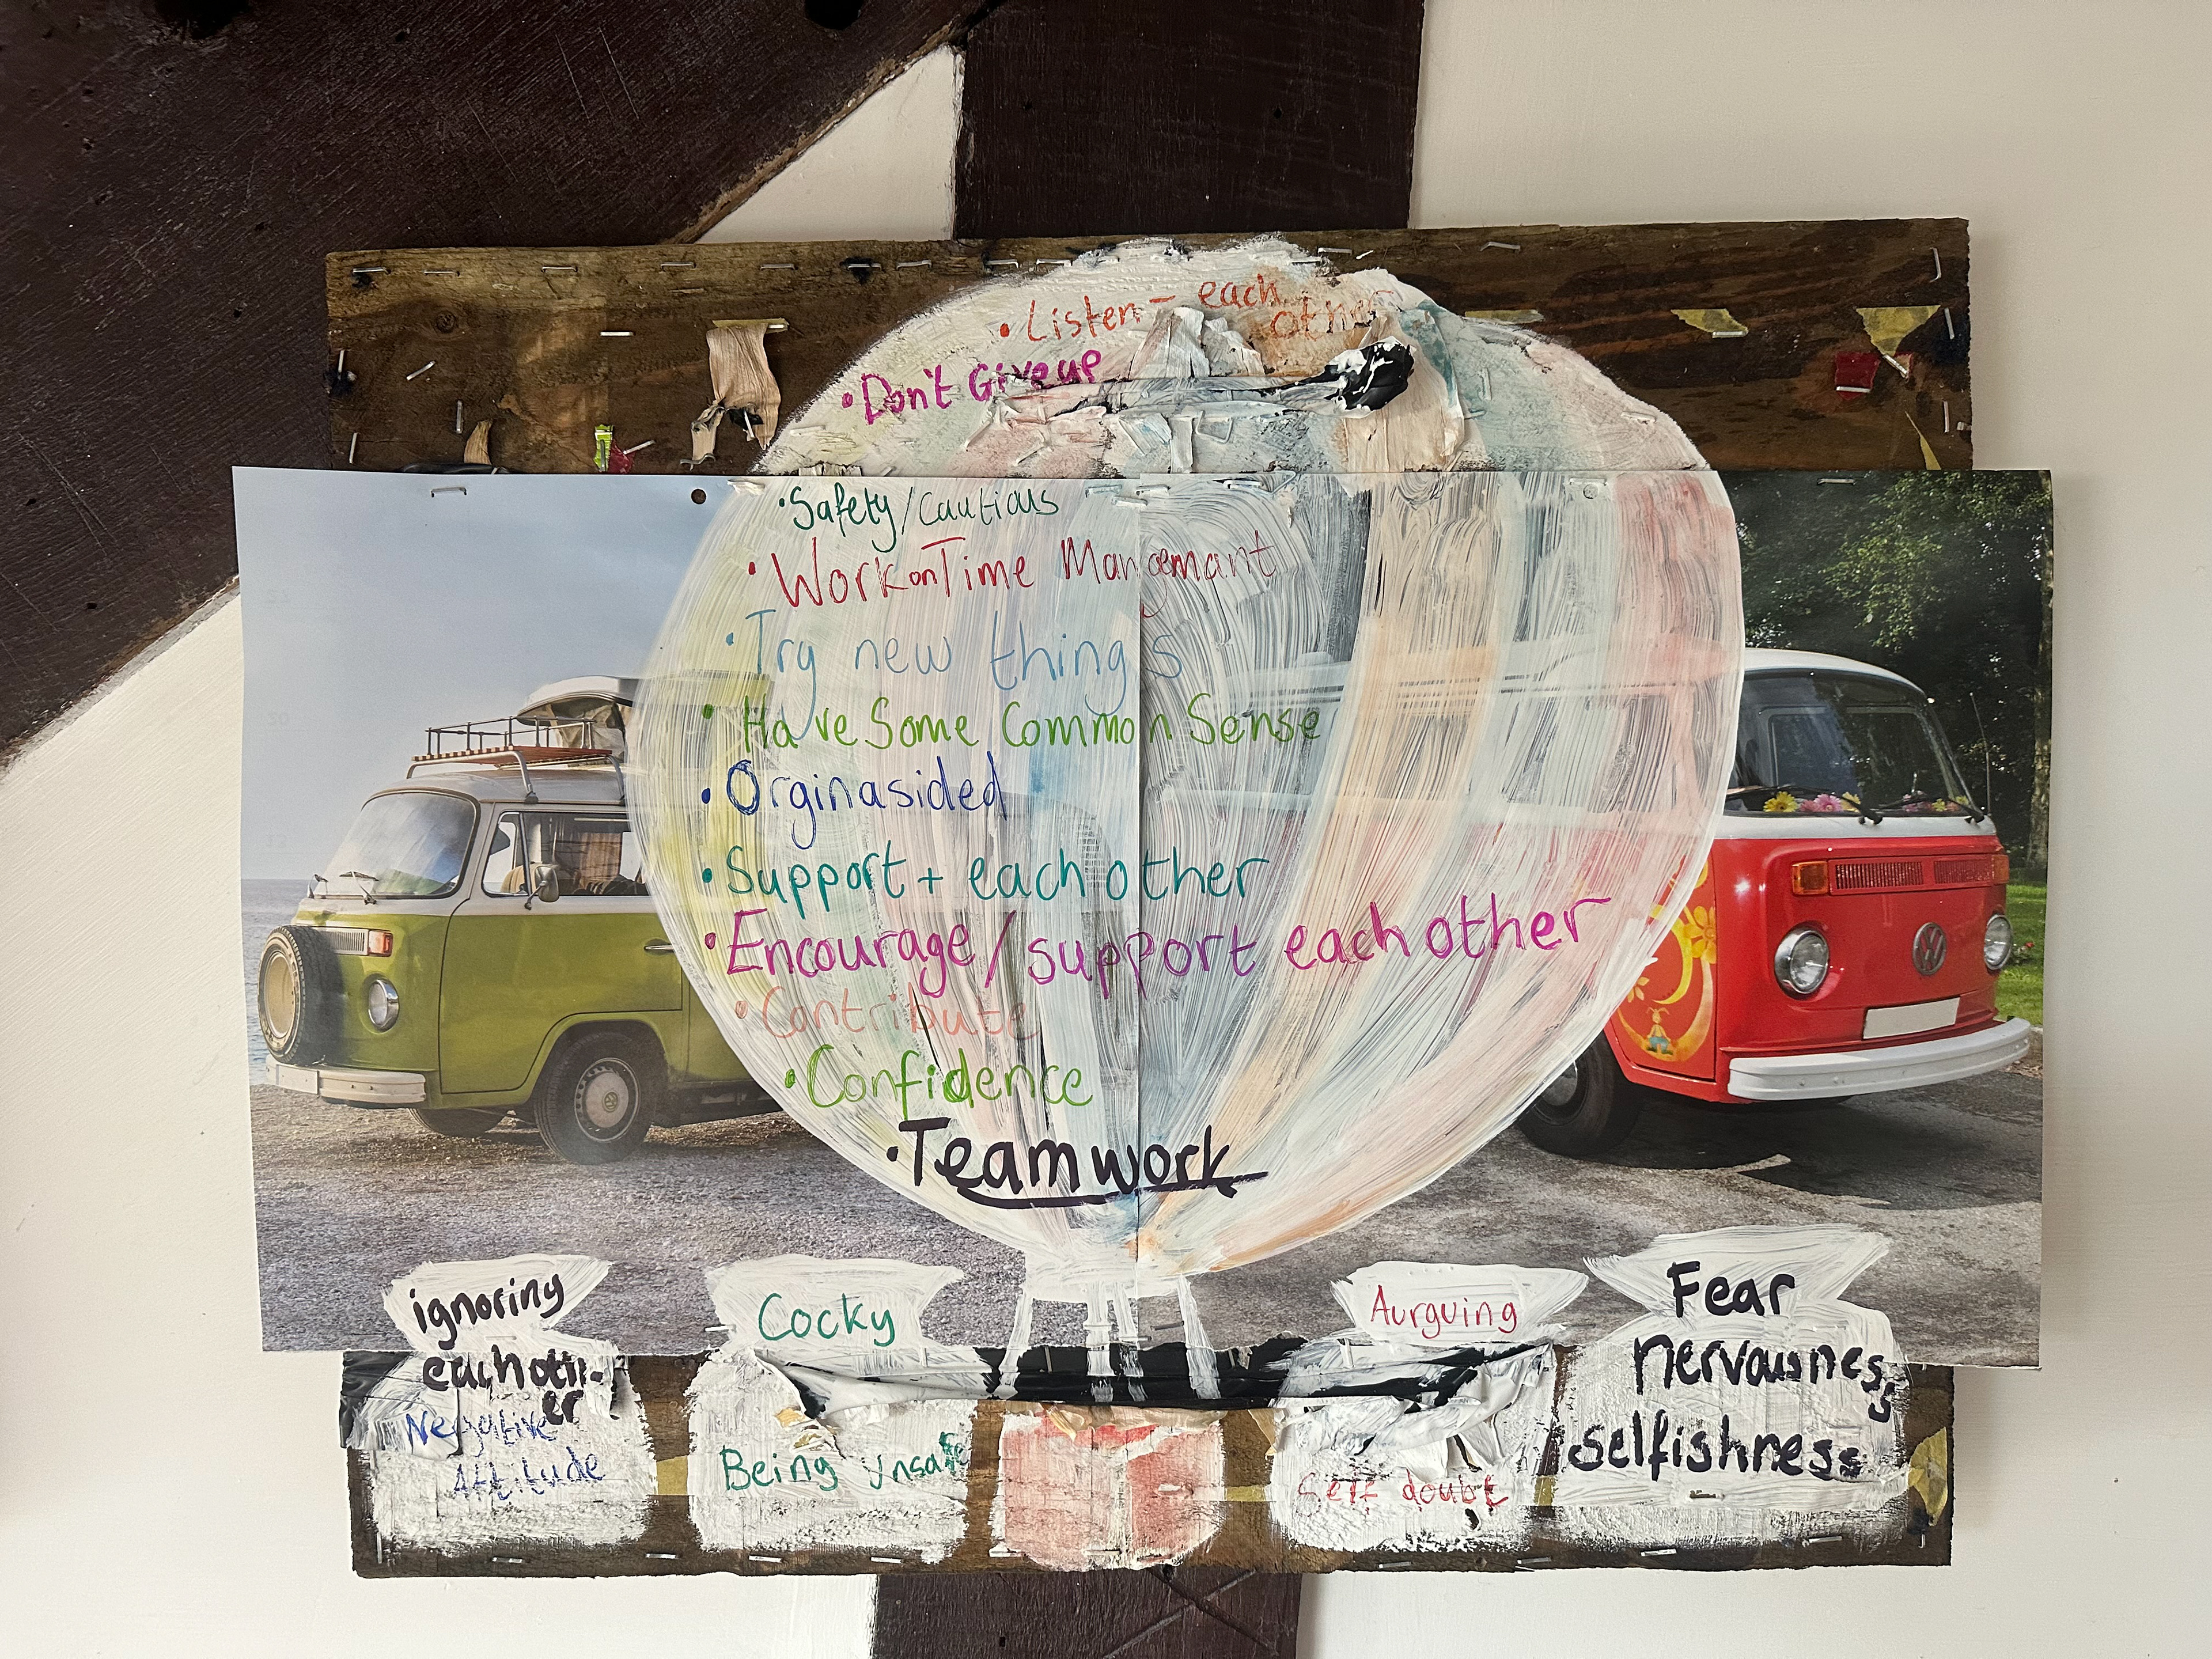 • Listen - each
other
• Don't Give up
• Safety/Cautious
• Work on Time Mangemant
• Try new things
• Have Some Common Sense
• Orginasided
• Support + each other
• Encourage/support each other
• Contribute
• Confidence
• Teamwork
ignoring
eachoth-
er
Negative
Attitude
Cocky
Being unsafe
Aurguing
Self doubt
Fear
nervousness
selfishness